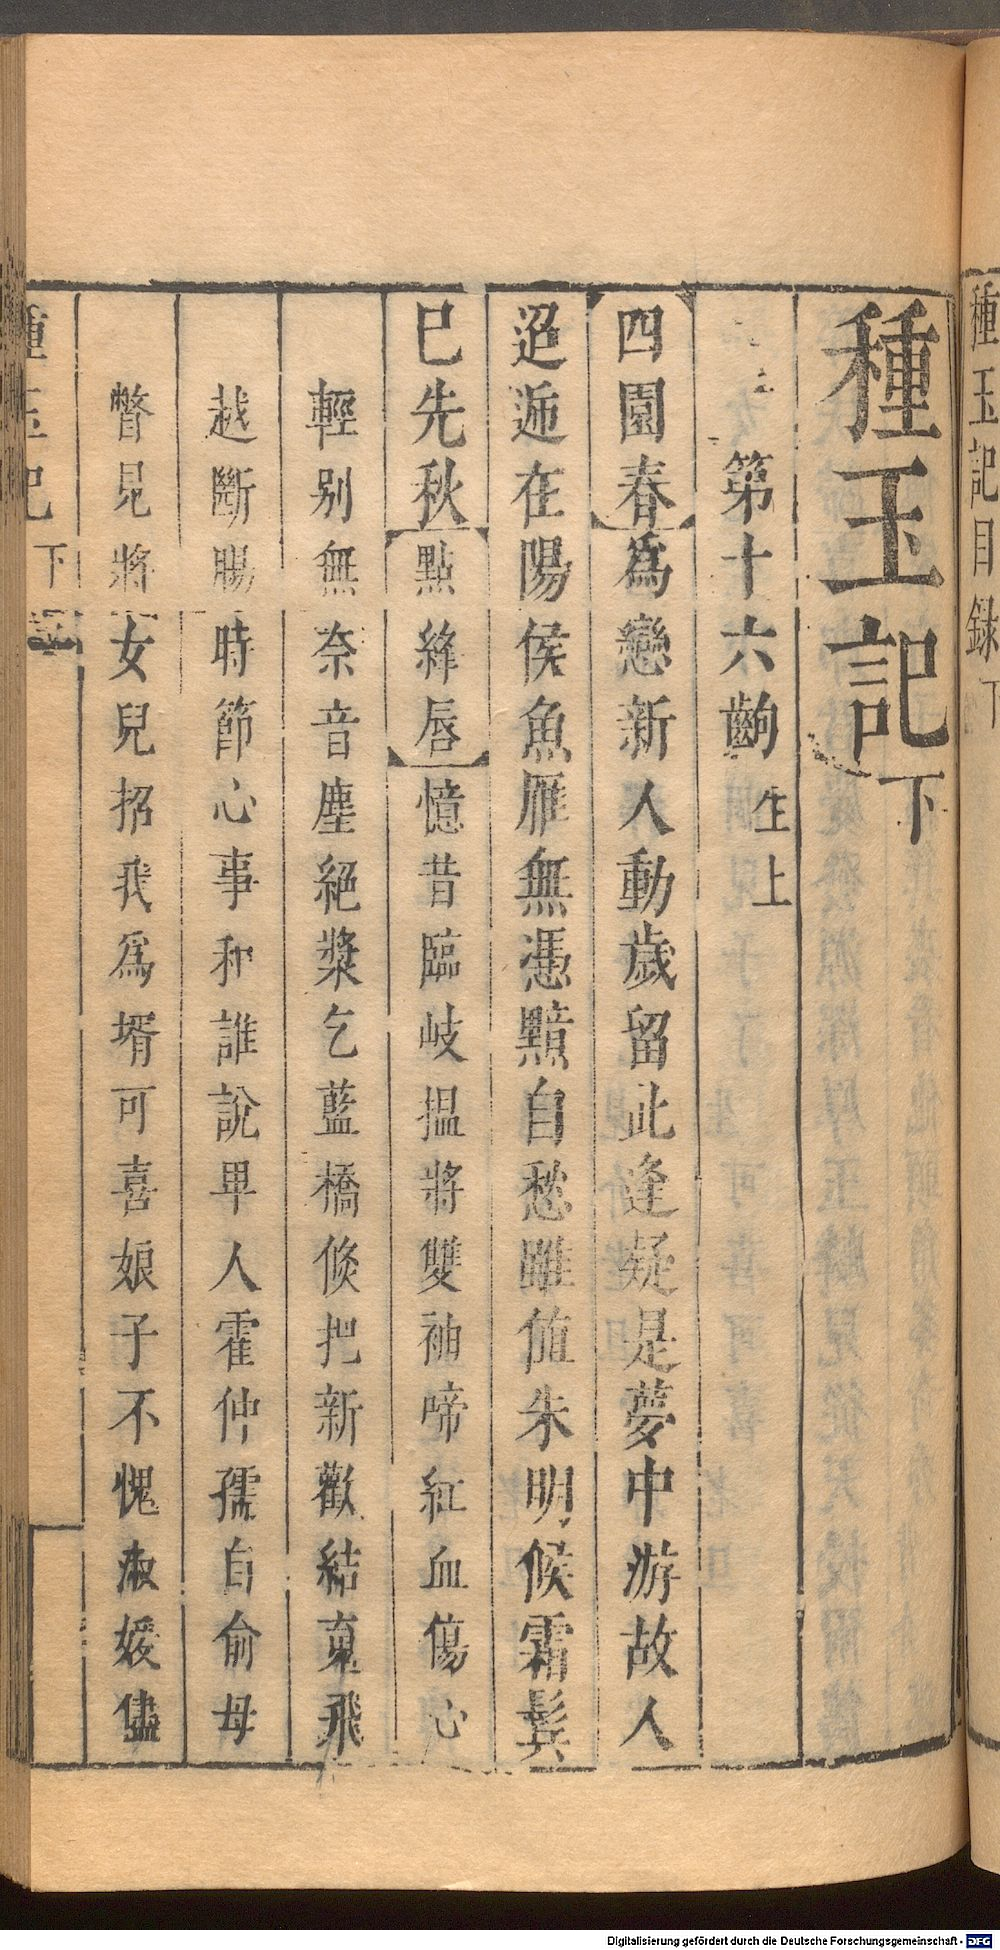 種玉記目錄下
種玉記下
第十六齣 生上
四園春爲戀新人動歲留此逢疑是夢中游故人
迢遞在陽侯魚雁無憑黯自愁雖值朱明候霜鬂
已先秋點絳唇憶昔臨岐搵將雙袖啼紅血傷心
輕别無奈音塵絕漿乞藍橋倐把新歡結東飛
越斷腸時節心事和誰說畢人霍仲孺自俞母
瞥見將女兒招我爲壻可喜娘子不愧淑媛儘
種玉記 下
Digitalisierung gefördert durch die Deutsche Forschungsgemeinschaft - DFG